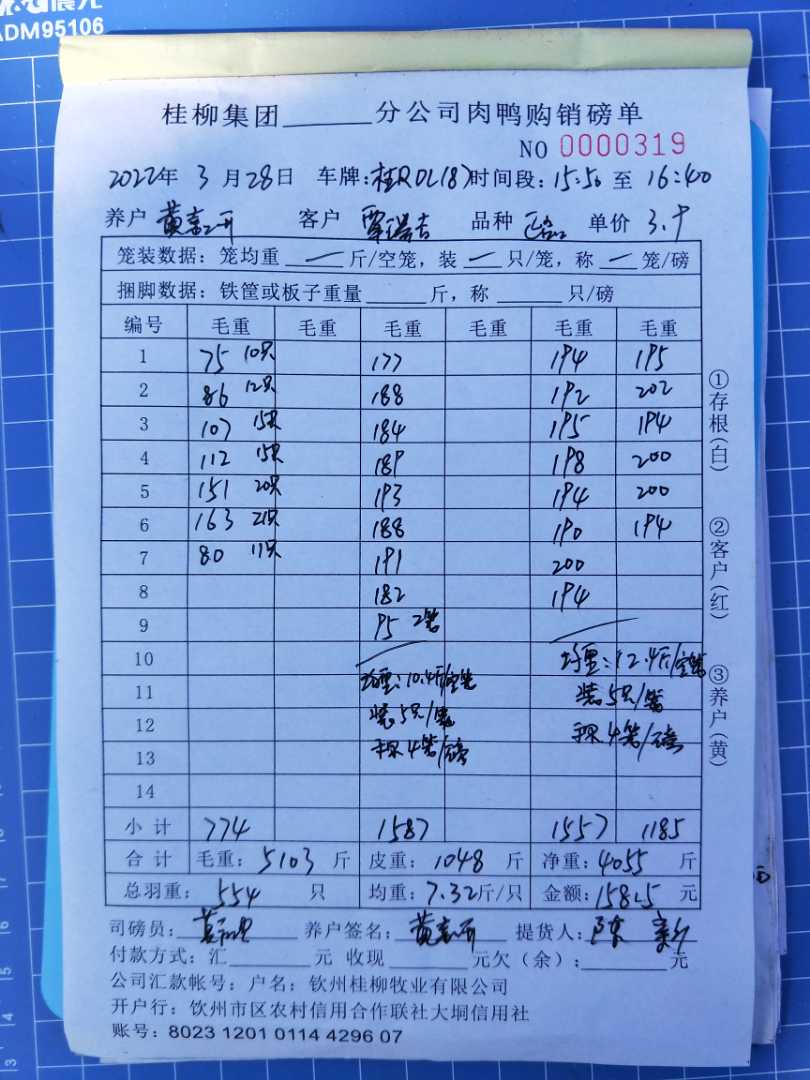 ADM95106
桂柳集团______分公司肉鸭购销磅单
NO 0000319
2022年 3 月 28日 车牌:桂R 时间段:15:50 至 16:40
养户 黄 客户 覃 吉 品种 单价 3.9
笼装数据：笼均重 — 斤/空笼，装 — 只/笼，称 — 笼/磅
捆脚数据：铁筐或板子重量______斤，称______只/磅
编号 毛重 毛重 毛重 毛重 毛重 毛重
1 75 10只 177 194 195
2 86 12只 188 192 202
3 107 15只 184 195 194
4 112 15只 189 198 200
5 151 20只 193 194 200
6 163 21只 188 190 194
7 80 11只 191 200
8 182 194
9 95 2笼
10 均重:10.4斤/空笼 均重:12.4斤/空笼
11 装5只/笼 装5只/笼
12 称4笼/磅 称4笼/磅
13
14
小 计 774 1587 1557 1185
合 计 毛重：5103 斤 皮重：1048 斤 净重：4055 斤
总羽重：554 只 均重：7.32斤/只 金额：15815 元
司磅员： 养户签名：黄 提货人：陈
付款方式：汇______元 收现______元欠（余）：______元
公司汇款帐号：户名：钦州桂柳牧业有限公司
开户行：饮州市区农村信用合作联社大垌信用社
账号：8023 1201 0114 4296 07
①存根(白)
②客户(红)
③养户(黄)